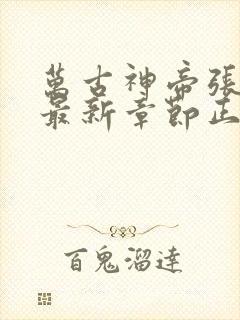 萬古神帝張
最新章節正
百鬼溜達